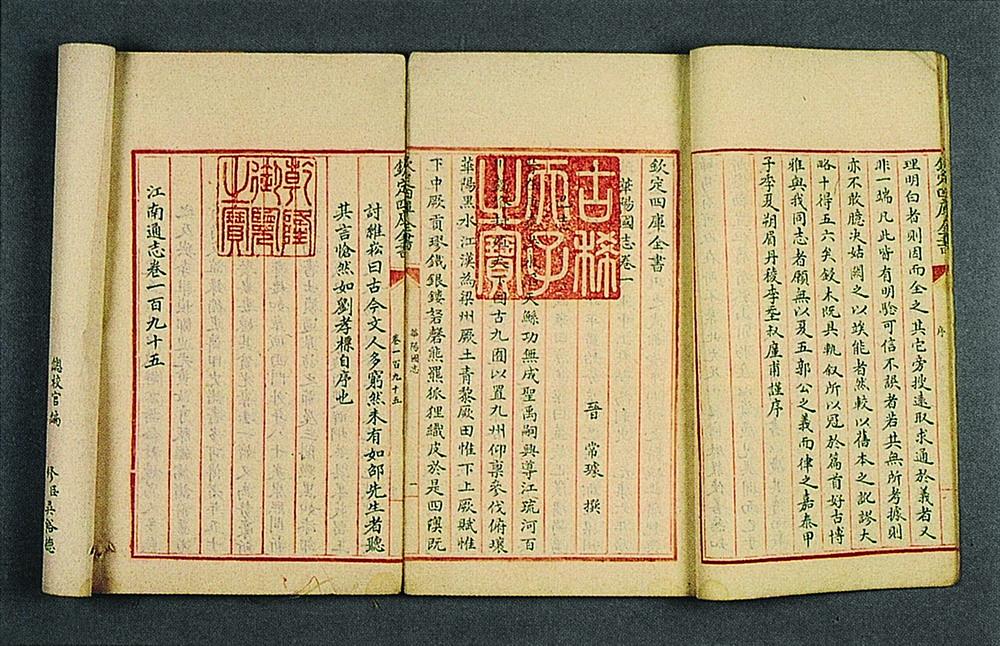 欽定四庫全書
序
理明白者則因而全之其它旁搜遠取求通於義者又
非一端凡此皆有明驗可信不誣者若其無所考據則
亦不敢臆決姑闕之以竢能者然較以舊本之訛謬大
略十得五六矣鋟木既具輒叙所以冠於篇首好古博
雅與我同志者願無以夏五郭公之義而律之嘉泰甲
子季夏朔眉丹稜李𡌴叔廑甫謹序
欽定四庫全書
華陽國志卷一
晉 常璩 撰
古稀
天子
之寶
天鯀功無成聖禹嗣興導江疏河百
因古九囿以置九州仰禀參伐俯壤
華陽黑水江漢為梁州厥土青黎厥田惟下上厥賦惟
下中厥貢璆鐵銀鏤砮磬熊羆狐狸織皮於是四隩既
欽定四庫全書
華陽國志
一
卷一百九十五
討維崧曰古今文人多窮然未有如邵先生者聽
其言愴然如劉孝標自序也
乾隆
御覽
之寶
江南通志卷一百九十五
總校官編修臣吳裕德